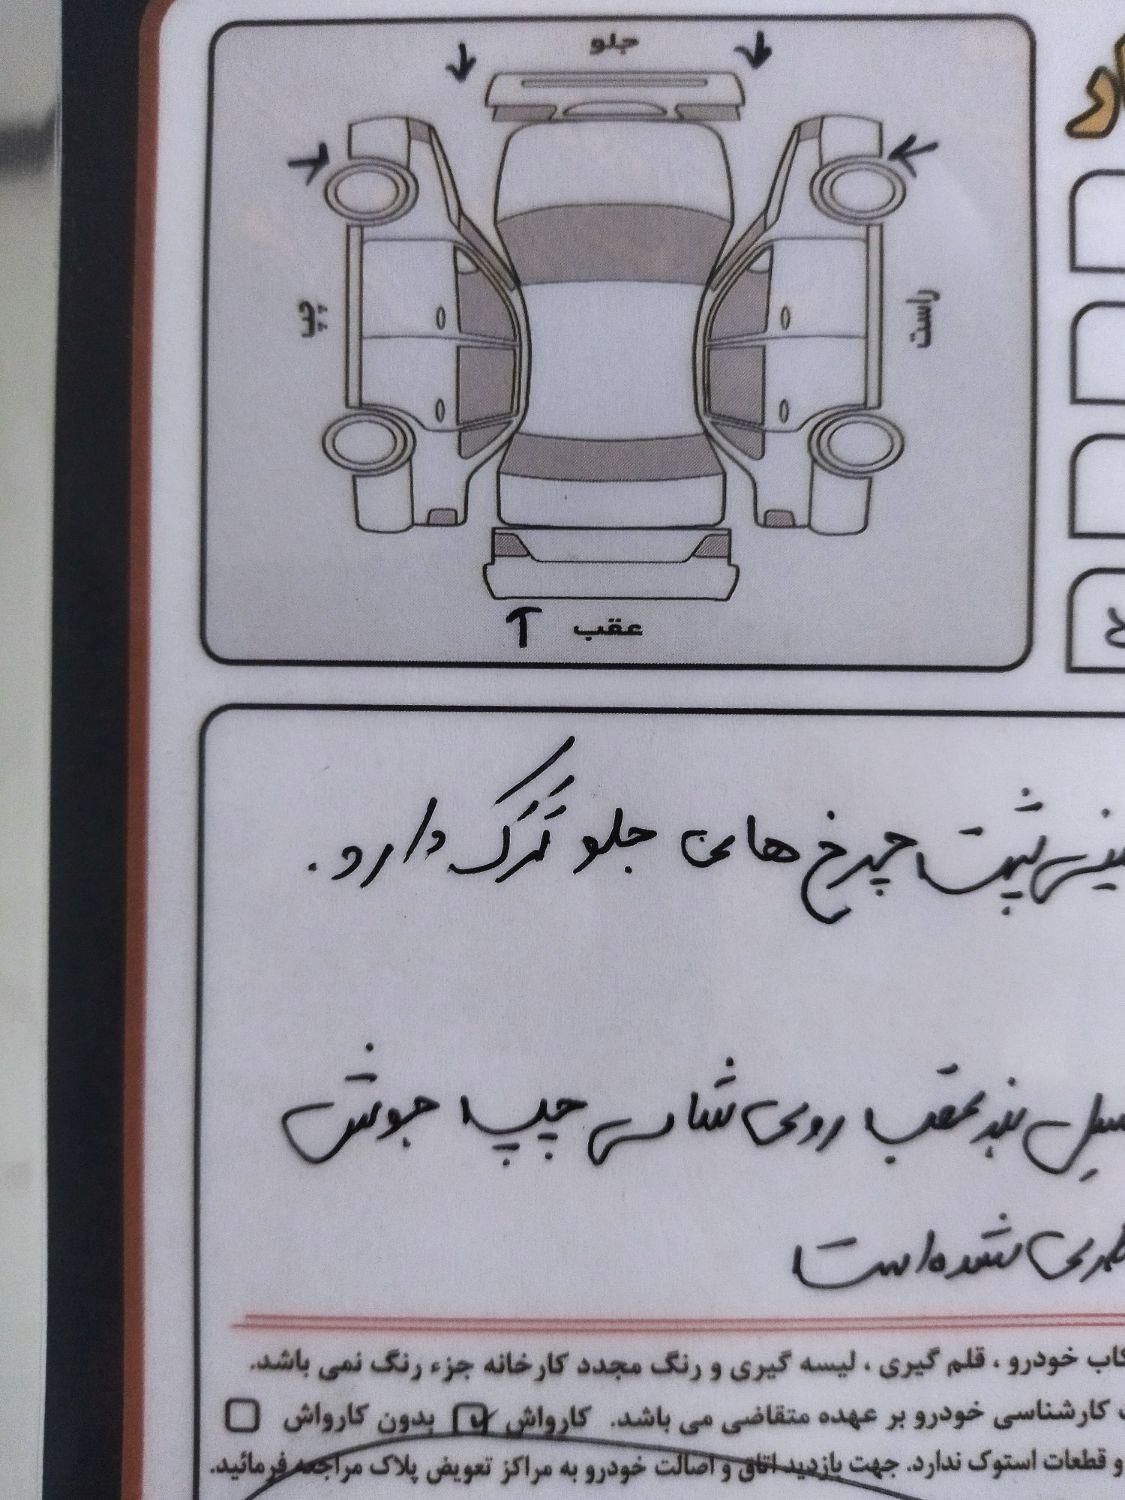 جلو
چپ
راست
عقب
پشت چرخ های جلو ترک دارد.
سیل بند عقب روی شاسی چپ جوش
شده است
کاب خودرو ، قلم گیری ، لیسه گیری و رنگ مجدد کارخانه جزء رنگ نمی باشد.
کارشناسی خودرو بر عهده متقاضی می باشد. کارواش بدون کارواش
و قطعات استوک ندارد. جهت بازدید اتاق و اصالت خودرو به مراکز تعویض پلاک مراجعه فرمائید.